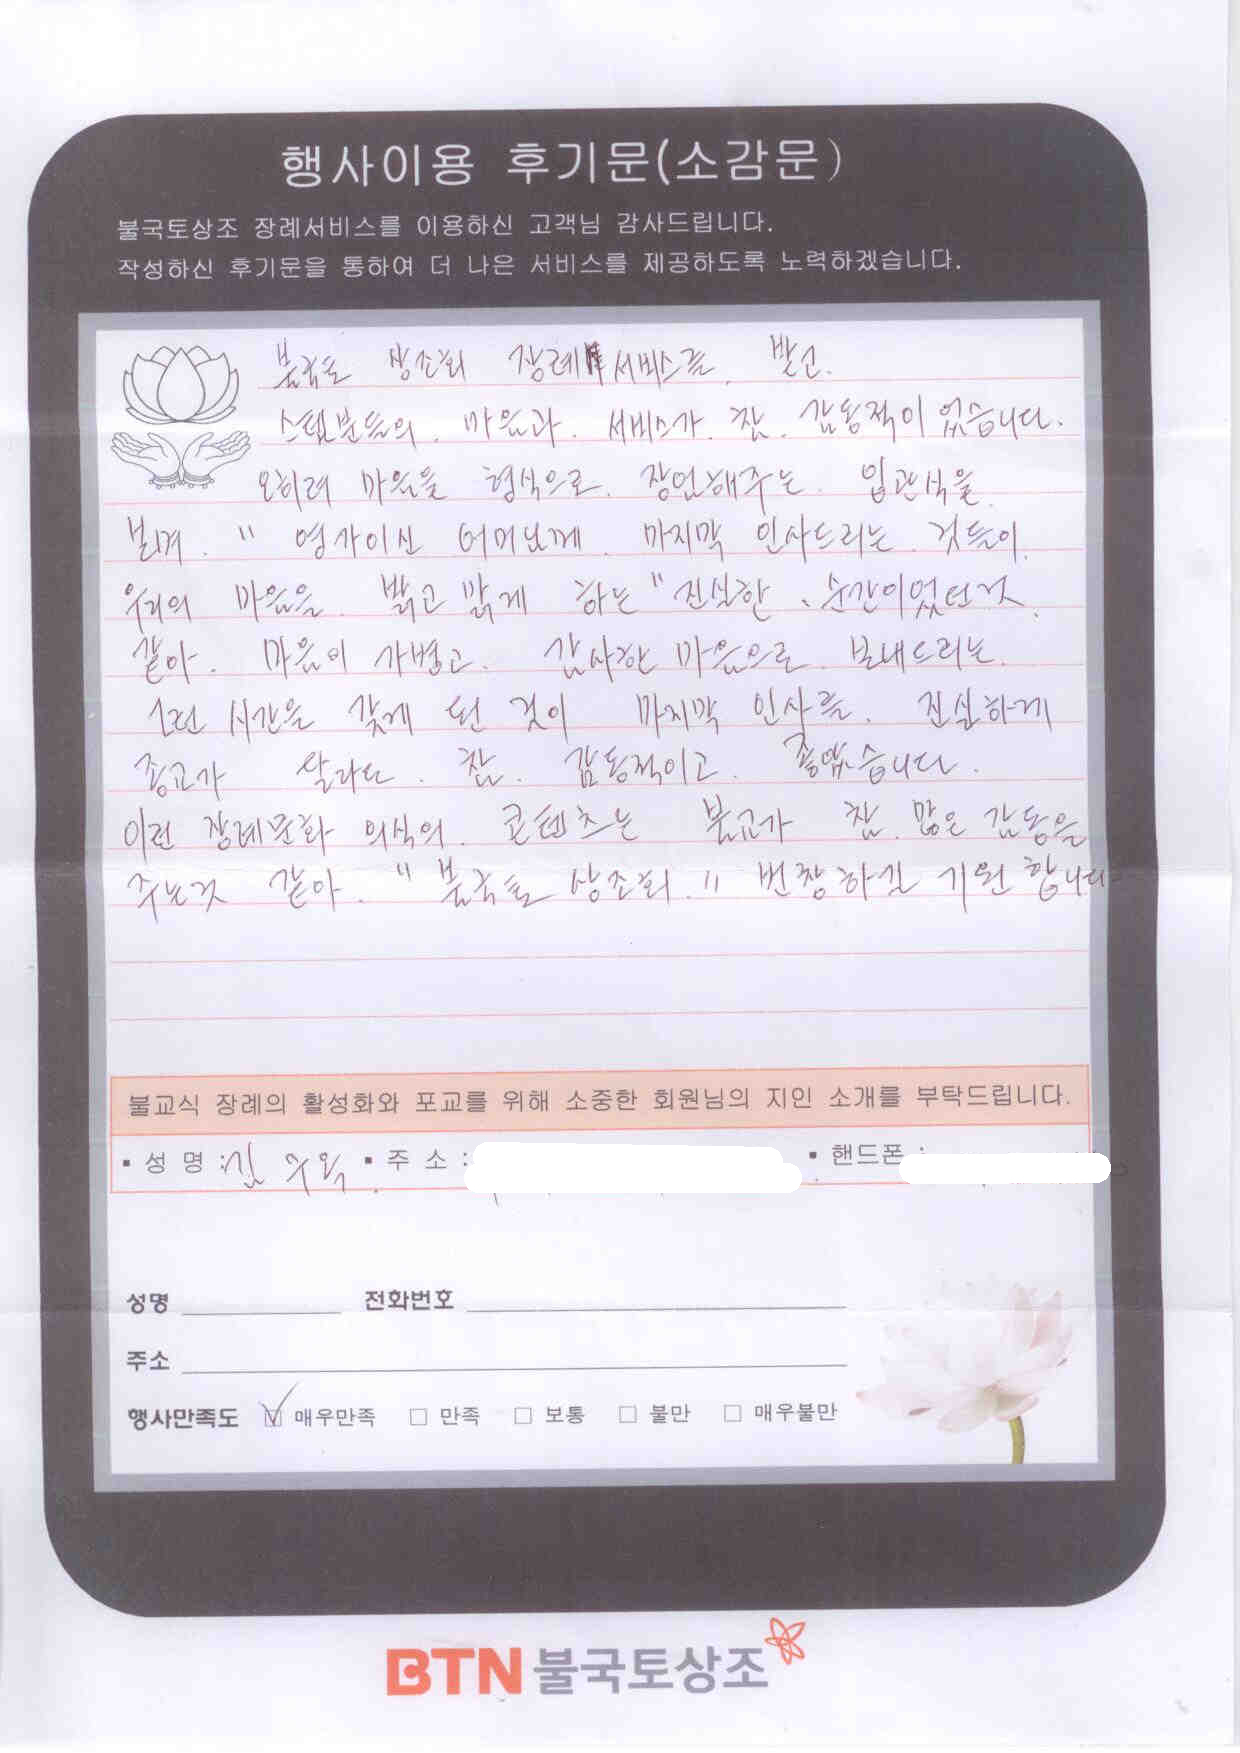 행사이용 후기문(소감문)
불국토상조 장례서비스를 이용하신 고객님 감사드립니다.
작성하신 후기문을 통하여 더 나은 서비스를 제공하도록 노력하겠습니다.
불국토 상조회 장례 서비스를. 받고.
스탭분들의. 마음과. 서비스가. 참. 감동적이었습니다.
오히려 마음을 형식으로. 장엄해주는. 입관식을.
뵐게. " 영가이신 어머니께. 마지막 인사드리는. 것들이.
우리의 마음을. 밝고 맑게 하는" 진실한. 순간이었던것.
같아. 마음이 가볍고. 감사한 마음으로. 보내드리는.
그런 시간을 갖게 된 것이 마지막 인사를. 진실하게
종교가 달라도. 참. 감동적이고. 좋았습니다.
이런 장례문화 의식의. 콘텐츠는 불교가 참. 많은 감동을
주는것 같아. " 불국토 상조회. " 번창하길 기원 합니다
불교식 장례의 활성화와 포교를 위해 소중한 회원님의 지인 소개를 부탁드립니다.
▪ 성 명 : 김 ▪ 주 소 : ▪ 핸드폰 :
성명 전화번호
주소
행사만족도 ☑ 매우만족 □ 만족 □ 보통 □ 불만 □ 매우불만
BTN 불국토상조